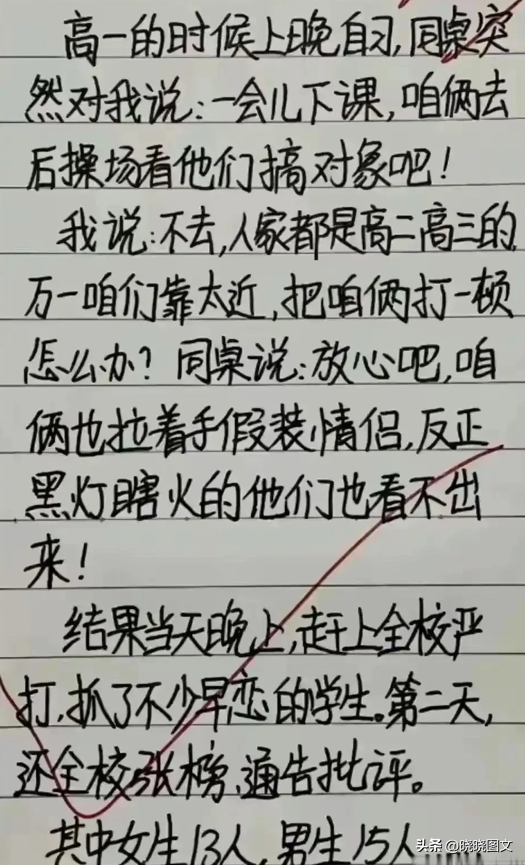 高一的时候上晚自习,同桌突
然对我说:一会儿下课,咱俩去
后操场看他们搞对象吧!
我说:不去,人家都是高二高三的,
万一咱们靠太近,把咱俩打一顿
怎么办?同桌说:放心吧,咱
俩也拉着手假装情侣,反正
黑灯瞎火的他们也看不出
来!
结果当天晚上,赶上全校严
打,抓了不少早恋的学生。第二天,
还全校张榜、通告批评。
其中女生13人,男生15人
头条@晓晓图文